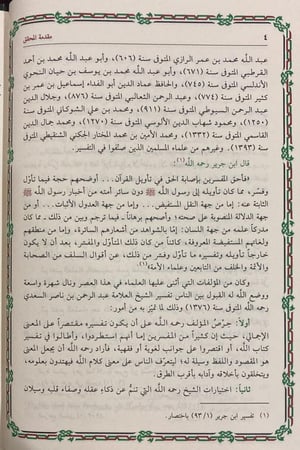 ٤ مقدمة المحقق
عبد اللَّه محمد بن عمر الرازي المتوفى سنة (٦٠٦)، وأبو عبد اللَّه محمد بن أحمد
القرطبي المتوفى سنة (٦٧١)، وأبو عبد اللَّه محمد بن يوسف بن حيان النحوي
الأندلسي المتوفى سنة (٧٤٥)، والحافظ عماد الدين أبو الفداء إسماعيل بن عمر بن
كثير المتوفى سنة (٧٧٤)، وعبد الرحمن الثعالبي المتوفى سنة (٨٧٦)، وجلال الدين
عبد الرحمن السيوطي المتوفى سنة (٩١١)، ومحمد بن علي الشوكاني المتوفى سنة
(١٢٥٠)، ومحمود شهاب الدين الألوسي المتوفى سنة (١٢٧٠)، ومحمد جمال الدين
القاسمي المتوفى سنة (١٣٣٢)، ومحمد الأمين بن محمد المختار الجكني الشنقيطي المتوفى
سنة (١٣٩٣)، وغيرهم من علماء المسلمين الذين صنفوا في التفسير.
قال ابن جرير رحمه اللَّه(١):
«فأحق المفسرين بإصابة الحق في تأويل القرآن... أوضحهم حجة فيما تأوّل
وفسّر، مما كان تأويله إلى رسول اللَّه ﷺ دون سائر أمته من أخبار رسول اللَّه ﷺ
الثابتة عنه: إما من جهة النقل المستفيض... وإما من جهة العدول الأثبات... أو من
جهة الدلالة المنصوبة على صحته؛ وأصحهم برهاناً فيما ترجم وبين من ذلك، مما كان
مدركاً علمه من جهة اللسان: إمّا بالشواهد من أشعارهم السائرة، وإما من منطقهم
ولغاتهم المستفيضة المعروفة، كائناً من كان ذلك المتأوّل والمفسّر، بعد أن لا يكون
خارجاً تأويله وتفسيره ما تأوّل وفسّر من ذلك، عن أقوال السلف من الصحابة
والأئمة والخلف من التابعين وعلماء الأمة».
وكان من المؤلفات التي أثنى عليها العلماء في هذا العصر ونال شهرة واسعة
ووضع اللَّه له القبول بين الناس تفسير الشيخ العلامة عبد الرحمن بن ناصر السعدي
المتوفى سنة (١٣٧٦) وذلك لما تميز به من أمور:
أولاً: حرصُ المؤلف رحمه اللَّه على أن يكون تفسيره مقتصراً على المعنى
الإجمالي، حيث إن كثيراً من المفسرين إما أنهم استطردوا، وأطالوا في تفسير
كتاب اللَّه، أو اقتصروا على جوانب لغوية أو فقهية، فأراد رحمه اللَّه أن يجعل المعنى
هو المقصود واللفظ وسيلة له؛ ليتعرّف الناس على معنى كلام اللَّه فيهتدون بعلومه،
ويتخلقون بأخلاقه وآدابه بأقرب الطرق.
ثانياً: اختيارات الشيخ رحمه اللَّه التي تنمُّ عن ذكاء عقله وصفاء قلبه وسيلان
(١) تفسير ابن جرير (١/ ٩٣) باختصار.